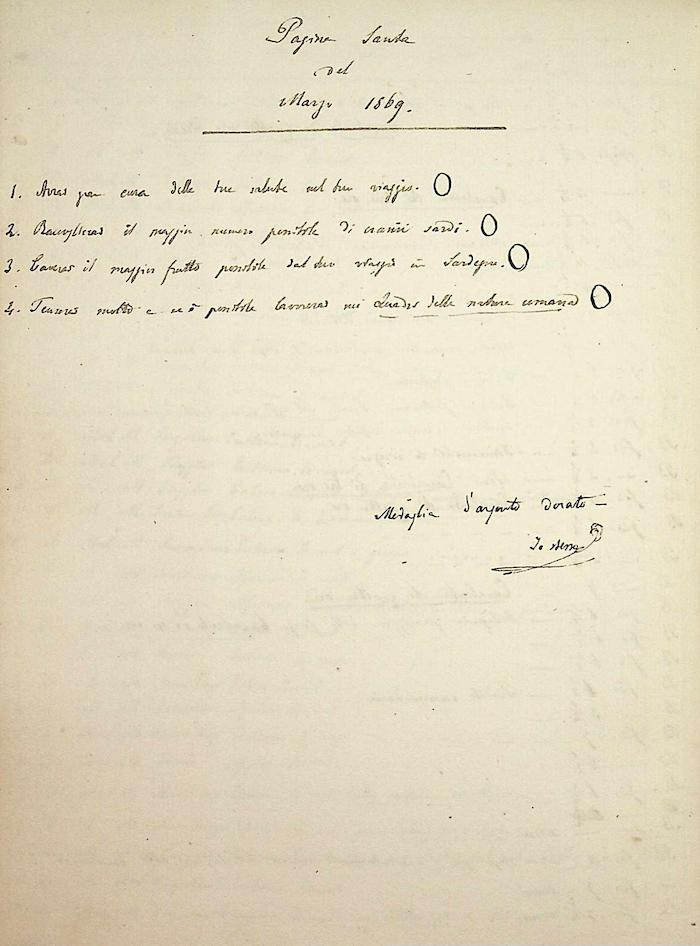 Pagina Santa
del
Marzo 1869.
1. Avrai gran cura della tua salute nel tuo viaggio. O
2. Raccoglierai il maggior numero possibile di cranii sardi. O
3. Caverai il maggior frutto possibile dal tuo viaggio in Sardegna. O
4. molto e se è possibile lavorerai nei Quadri della natura umana O
Medaglia d'argento dorato —
Io stesso